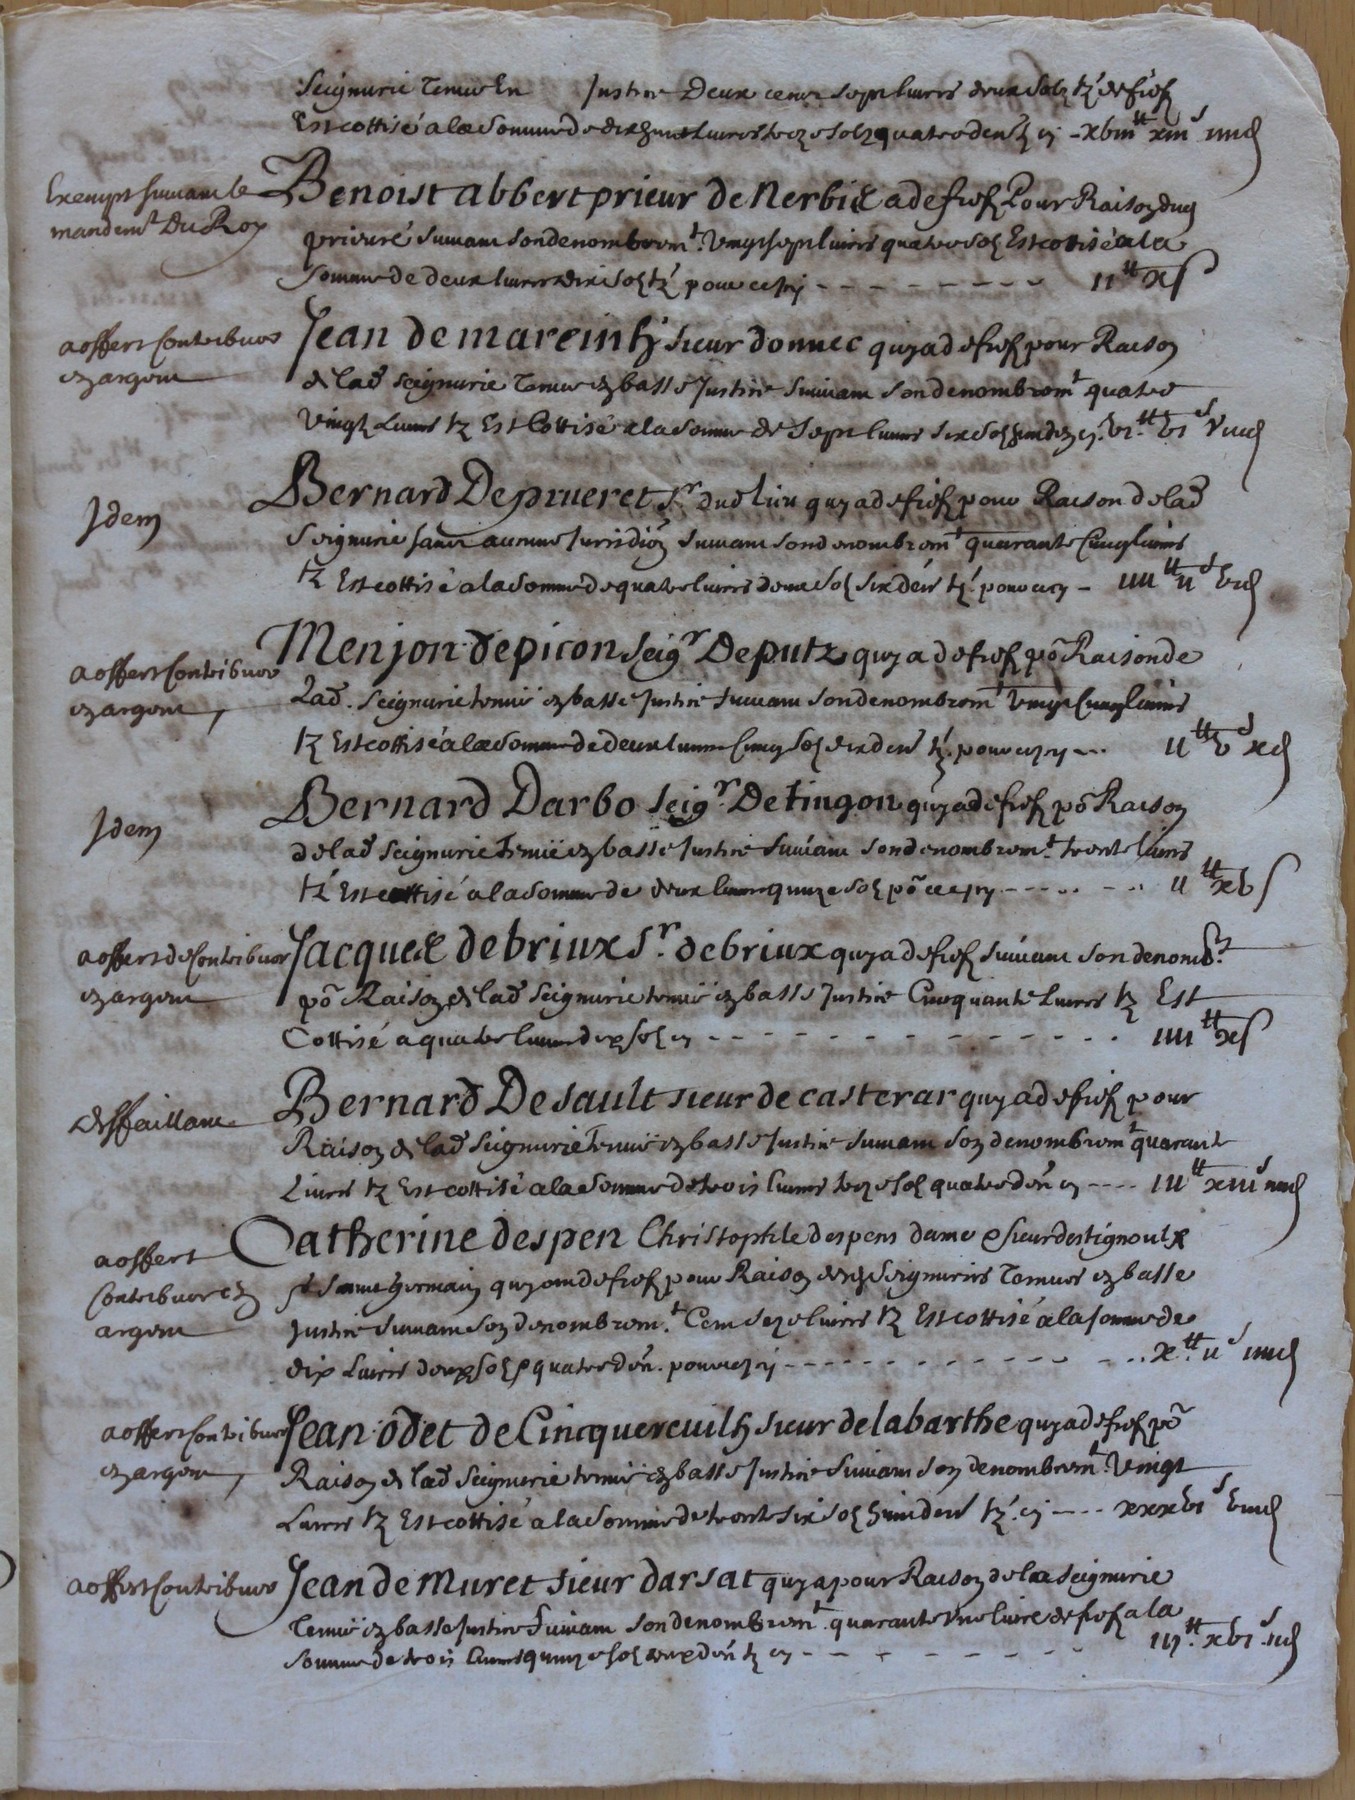 Seigneurie tenue En Justice Deux cens sept livres deux solz tz de fief
Est cottisé a la somme de dix huit Livres treze solz quatre den tz cy - xbiii tt xiii s iiii d
Exempt suivant le
mandemt Du Roy
Benoist abbert prieur de Nerbis a de fief Pour Raison dud
prieuré suivant son denombremt. Vingt sept livres quatre sol Est cottisé a la
somme de deux livres dix sol tz pour cecy - - - - - - - - ii tt x s
a offert contribuer
en argent
Jean de mareinh sieur donnec quy a de fief pour Raison
de lad seigneurie Tenue en basse Justice suivant son denombremt quatre
Vingtz Livres tz Est Cottisé a la somme de sept livres six solz huit den cy. bi tt bi s viii d
Idem
Bernard Deprueret sr dud lieu quy a de fief pour Raison de lad
seigneurie sans aucune Jurisdion suivant son denombremt quarante Cinq livres
tz Est cottisé a la somme de quatre livres deux sol six den tz. pour cecy - iiii tt ii s bi d
a offert contribuer
en argent,
Menjon depicon seigr Deputz quy a de fief po Raison de
Lad. seigneurie tenue en basse Justice suivant son denombremt Vingt Cinq livres
tz Est cottisé a la somme de deux livres Cinq sol dix den tz. pour cecy --- ii tt b s x d
Idem
Bernard Darbo seigr. De tingon quy a de fief po Raison
de lad seigneurie Tenue en basse Justice suivant son denombremt. trente livres
tz Est cottisé a la somme de deux livres quinze sol po cecy - - - - - - ii tt xb s
a offert de contribuer
en argent
Jacques debriux Sr. debriux quy a de fief suivant son denombt.
po Raison de lad seigneurie tenue en basse Justice Cinquante Livres tz Est
Cottisé a quatre livres dix sol cy - - - - - - - - - - - - - iiii tt x s
deffaillant
Bernard Desault sieur de casterar quy a de fief pour
Raison de lad seigneurie Tenue en basse Justice suivant son denombremt quarante
Livres tz Est cottisé a la somme de trois livres treze sol quatre den cy ---- iii tt xiii s iiii d
a offert
contribuer en
argent
Catherine despen Christophle despens dame & sieur destignoulx
st saint Germain quy ont de fief pour Raison desd Seigneuries Tenues en basse
Justice suivant son denombremt. Cent seze livres tz Est cottisé a la somme de
dix Livres deux solz & quatre den. pour cecy - - - - - - - - - - x tt ii s iiii d
a offert contribuer
en argent,
Jean odet de Cincquereuilh sieur delabarthe quy a de fief po
Raison de lad seigneurie tenue en basse Justice suivant son denombremt. Vingt
Livres tz Est cottisé a la somme de trente six sol huit den tz. cy ---- xxxbi s biii d
a offert contribuer
Jean de Muret sieur darsat quy a pour Raison de la seigneurie
Tenue en basse Justice suivant son denombremt quarante Une livre de fief a la
somme de trois livres quinze sol deux den tz cy - - - - - - - - iii tt xbi s ii d